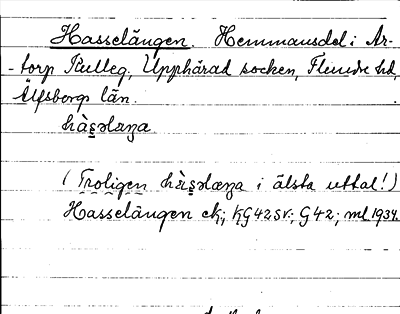 Hasselängen. Hemmansdel i Ar-
-torp Tulleg, Upphärad socken, Flundre hd,
Älfsborgs län.
hàs̱əlæŋa
(Troligen hàs̱əlæŋa i älsta uttal!)
Hasselängen ck; KG42sv; G42; ml 1934.